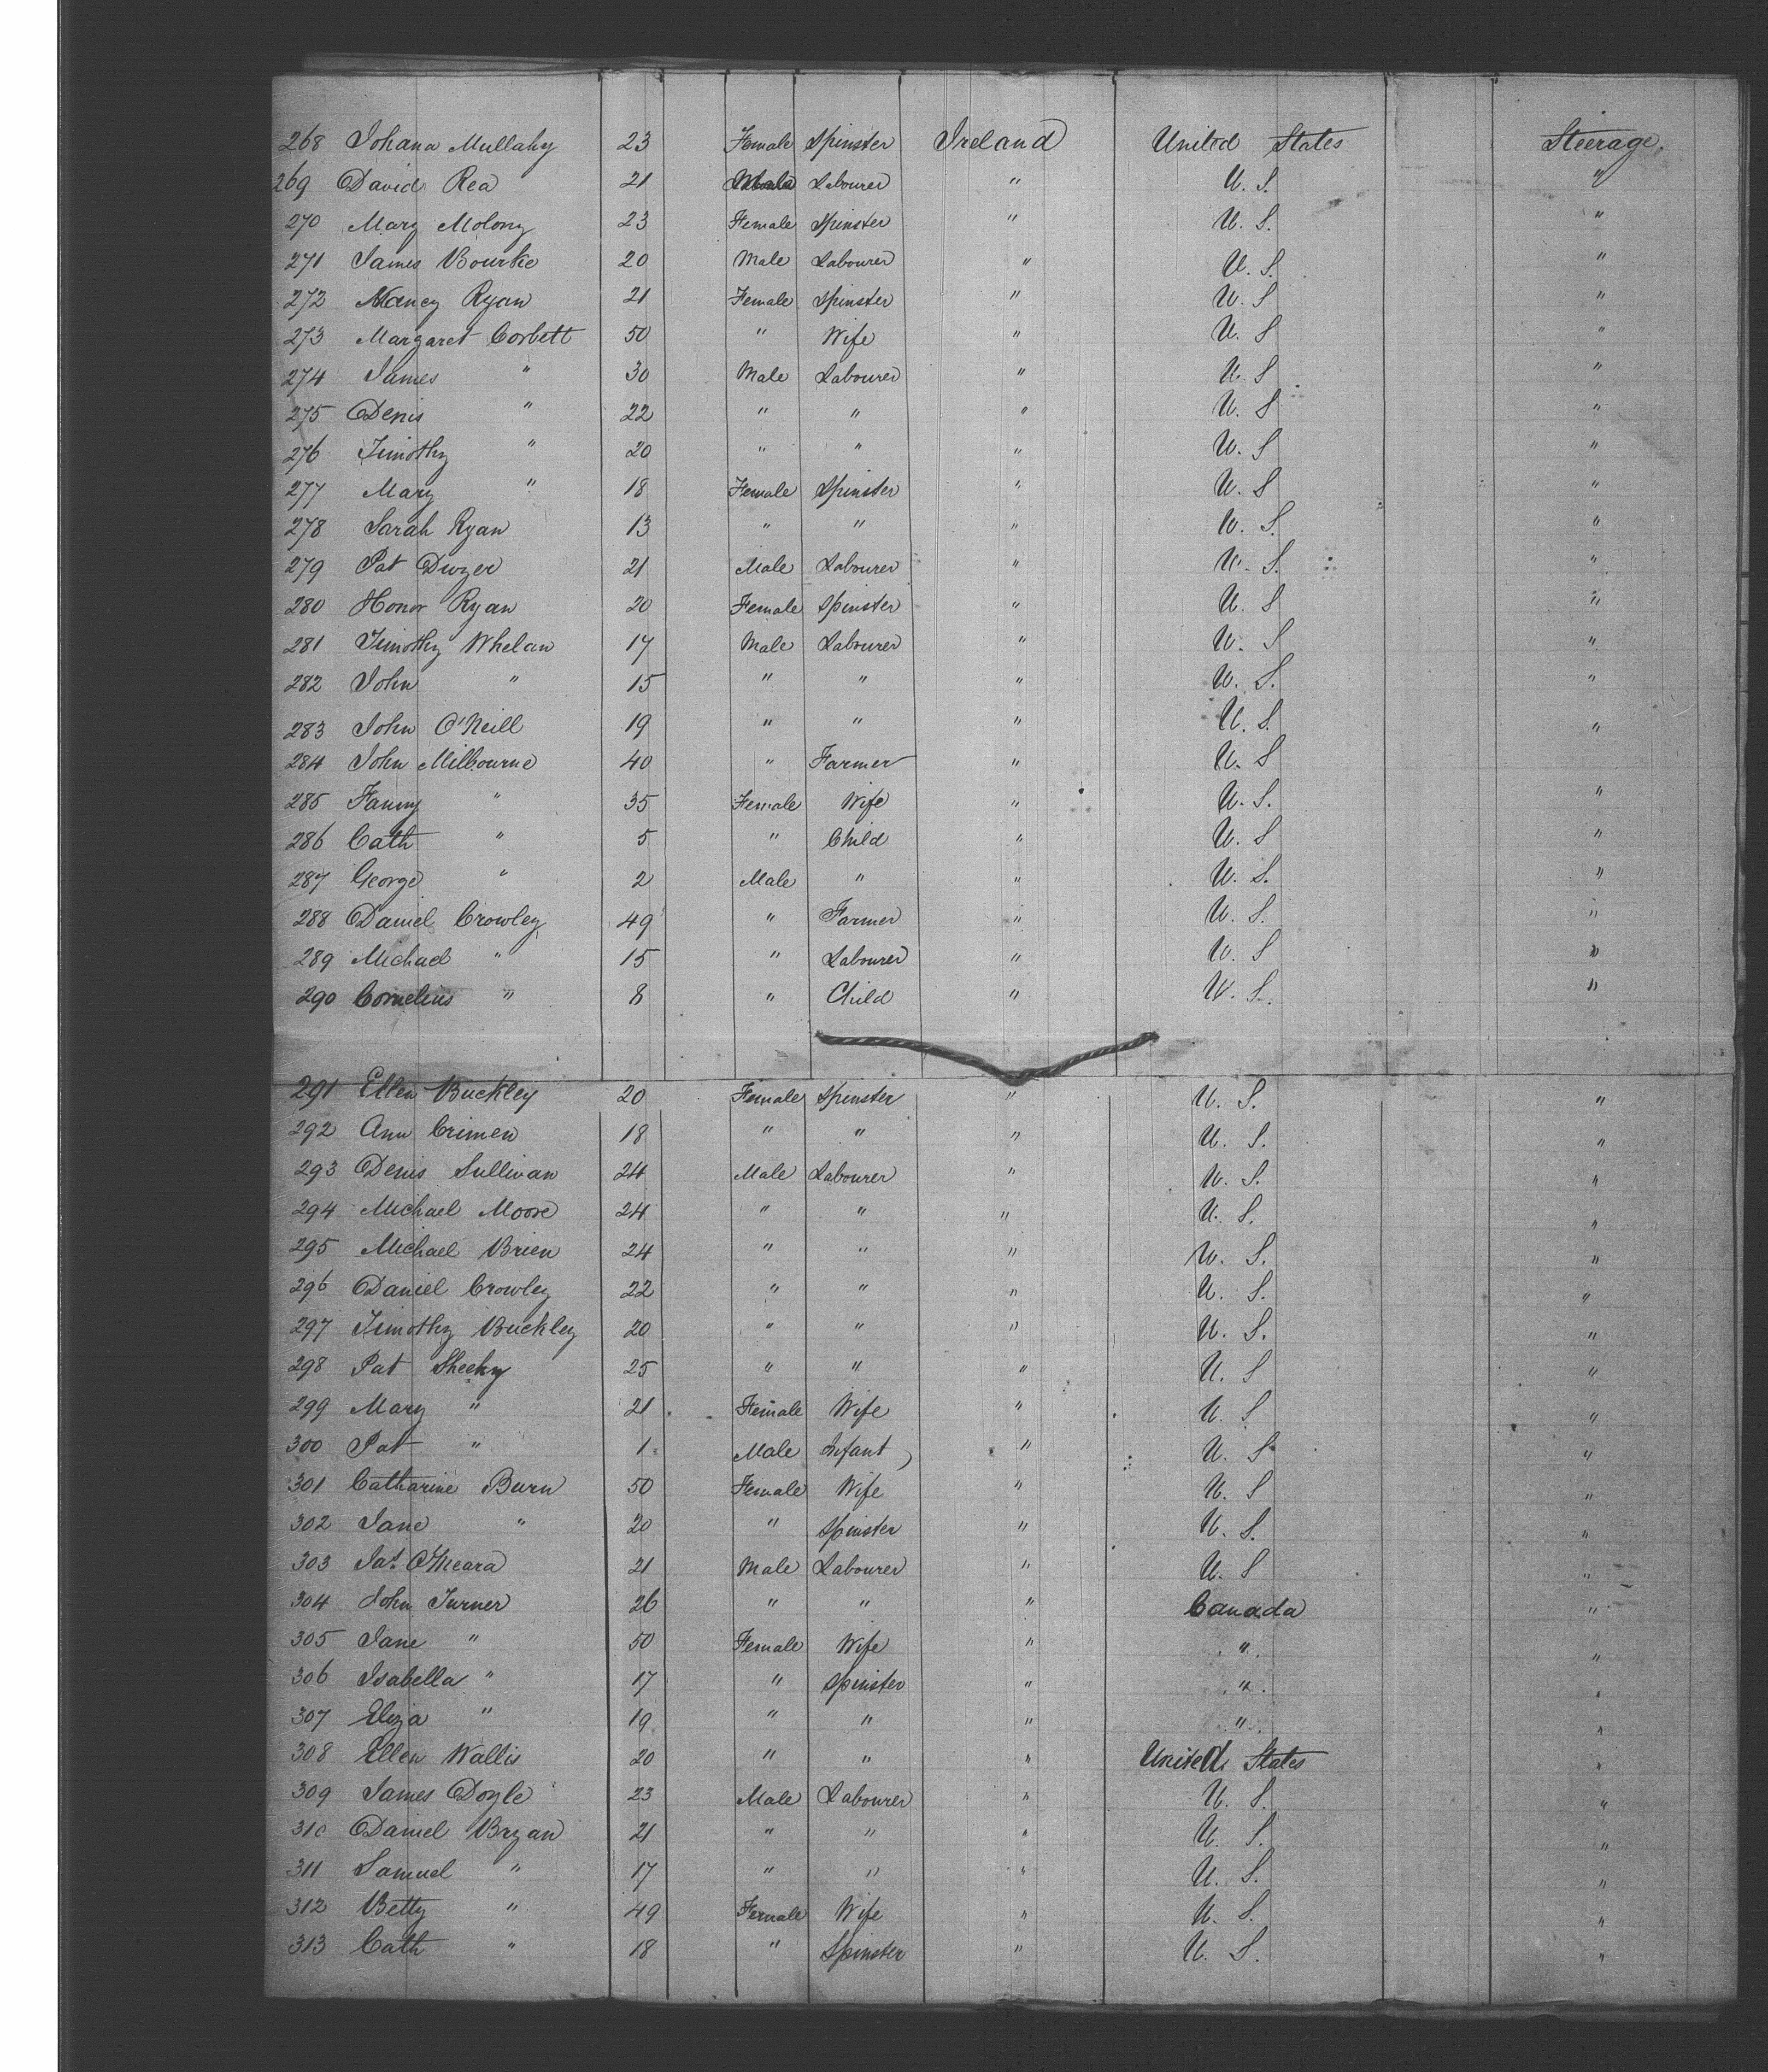 268 Johana Mullahy 23 Female Spinster Ireland United States Steerage.
269 David Rea 21 Male Labourer " U. S. "
270 Mary Molony 23 Female Spinster " U. S. "
271 James Bourke 20 Male Labourer " U. S. "
272 Nancy Ryan 21 Female Spinster " U. S "
273 Margaret Corbett 50 " Wife " U. S "
274 James " 30 Male Labourer " U. S "
275 Denis " 22 " " " U. S "
276 Timothy " 20 " " " U. S "
277 Mary " 18 Female Spinster " U. S "
278 Sarah Ryan 13 " " " U. S. "
279 Pat Dwyer 21 Male Labourer " U. S. "
280 Honor Ryan 20 Female Spinster " U. S "
281 Timothy Whelan 17 Male Labourer " U. S "
282 John " 15 " " " U. S. "
283 John O'Neill 19 " " " U. S. "
284 John Milbourne 40 " Farmer " U. S "
285 Fanny " 35 Female Wife " U. S. "
286 Cath " 5 " Child " U. S "
287 George " 2 Male " " U. S. "
288 Daniel Crowley 49 " Farmer " U. S. "
289 Michael " 15 " Labourer " U. S "
290 Cornelius " 8 " Child " U. S. "
291 Ellen Buckley 20 Female Spinster " U. S. "
292 Ann Crimen 18 " " " U. S. "
293 Denis Sullivan 24 Male Labourer " U. S. "
294 Michael Moore 24 " " " U. S. "
295 Michael Brien 24 " " " U. S. "
296 Daniel Crowley 22 " " " U. S. "
297 Timothy Buckley 20 " " " U. S. "
298 Pat Sheehy 25 " " " U. S "
299 Mary " 21 Female Wife " U. S "
300 Pat " 1 Male Infant " U. S "
301 Catharine Burn 50 Female Wife " U. S "
302 Jane " 20 " Spinster " U. S. "
303 Pat. O'Meara 21 Male Labourer " U. S "
304 John Turner 26 " " " Canada "
305 Jane " 50 Female Wife " " "
306 Isabella " 17 " Spinster " " "
307 Eliza " 19 " " " " "
308 Ellen Wallis 20 " " " United States "
309 James Doyle 23 Male Labourer " U. S. "
310 Daniel Bryan 21 " " " U. S. "
311 Samuel " 17 " " " U. S. "
312 Betty " 49 Female Wife " U. S. "
313 Cath " 18 " Spinster " U. S. "